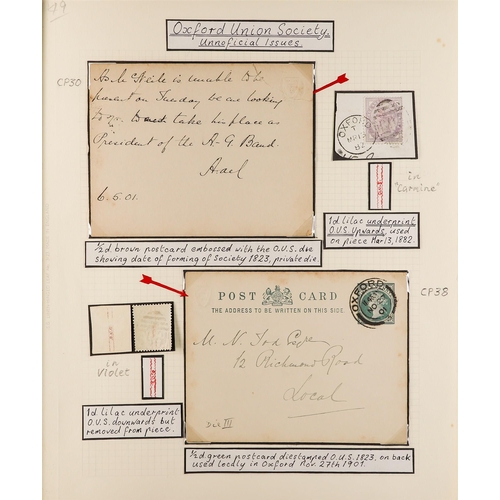 19
Oxford Union Society.
Unnoficial Issues
CP30
As Mr Neile is unable to be
present on Tuesday we are looking
to you to take his place as
President of the A-G Band.
6.6.01.
OXFORD
MR 13
82
in
"Carmine"
1d lilac underprint
O.U.S. Upwards, used
on piece Mar 13, 1882.
1/2d brown postcard embossed with the O.U.S. die
showing date of forming of Society 1823, private die.
CP38
POST CARD
THE ADDRESS TO BE WRITTEN ON THIS SIDE.
OXFORD
NO 27
01
M. N. Tod Esqre
12 Richmond Road
Local
Die III
in
Violet
1d lilac underprint
O.U.S. downwards but
removed from piece.
1/2d. green postcard diestamped O.U.S. 1823, on back
used locally in Oxford Nov. 27th 1901.